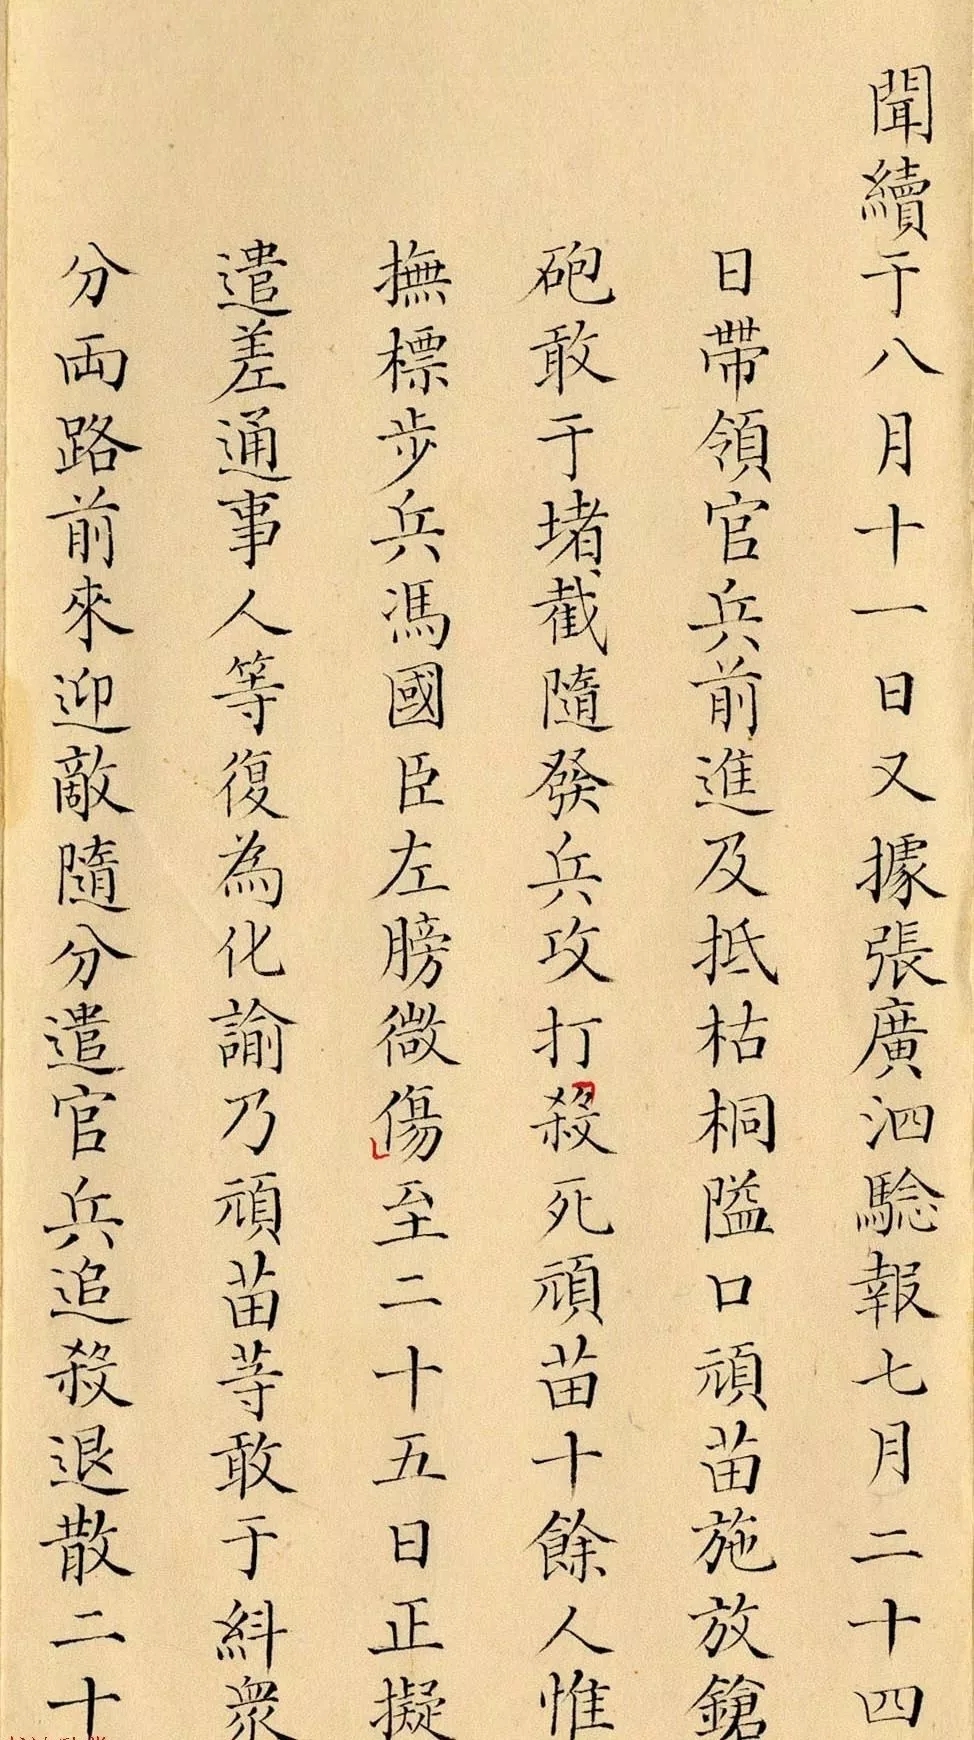 聞續于八月十一日又據張廣泗驗報七月二十四
日帶領官兵前進及抵枯桐隘口頑苗施放鎗
砲敢于堵截隨發兵攻打殺死頑苗十餘人惟
撫標步兵馮國臣左膀微傷至二十五日正擬
遣差通事人等復為化諭乃頑苗等敢于糾衆
分兩路前來迎敵隨分遣官兵追殺退散二十